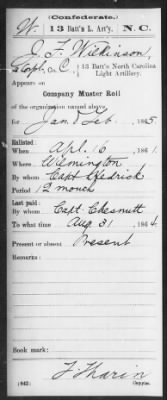 (Confederate.)
W. 13 Batt'n L. Art'y. N. C.
J. F. Wilkinson,
Capt., Co. C, 13 Batt'n North Carolina
Light Artillery.
Appears on
Company Muster Roll
of the organization named above,
for Jan & Feb., 1865
Enlisted:
When Apl. 16, 1861
Where Wilmington
By whom Capt Hedrick
Period 12 months
Last paid:
By whom Capt. Chesnutt
To what time Aug 31, 1864
Present or absent Present
Remarks:
Book mark:
(642) Copyist.